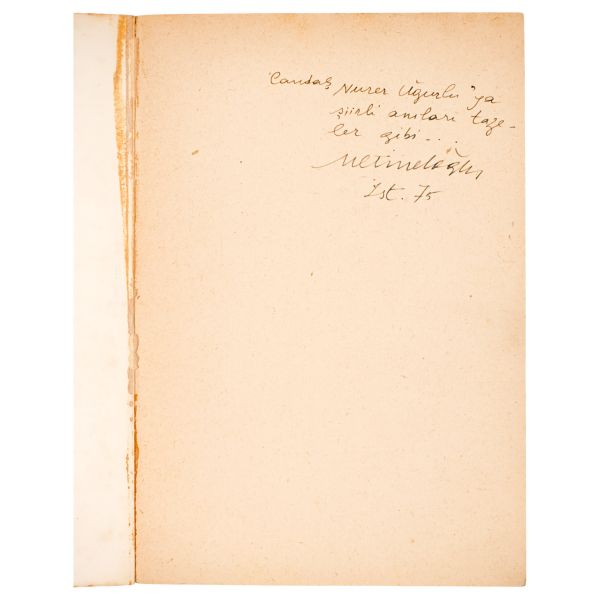 Candaş Nurer Uğurlu'ya
şiirli anıları taze-
ler gibi...
İst. 75